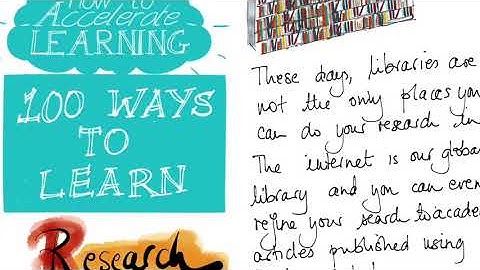 How to
Accelerate
LEARNING
100 WAYS
TO
LEARN
Research
These days, libraries are
not the only places you
can do your research in.
The internet is our global
library and you can even
refine your search to acade
articles published using